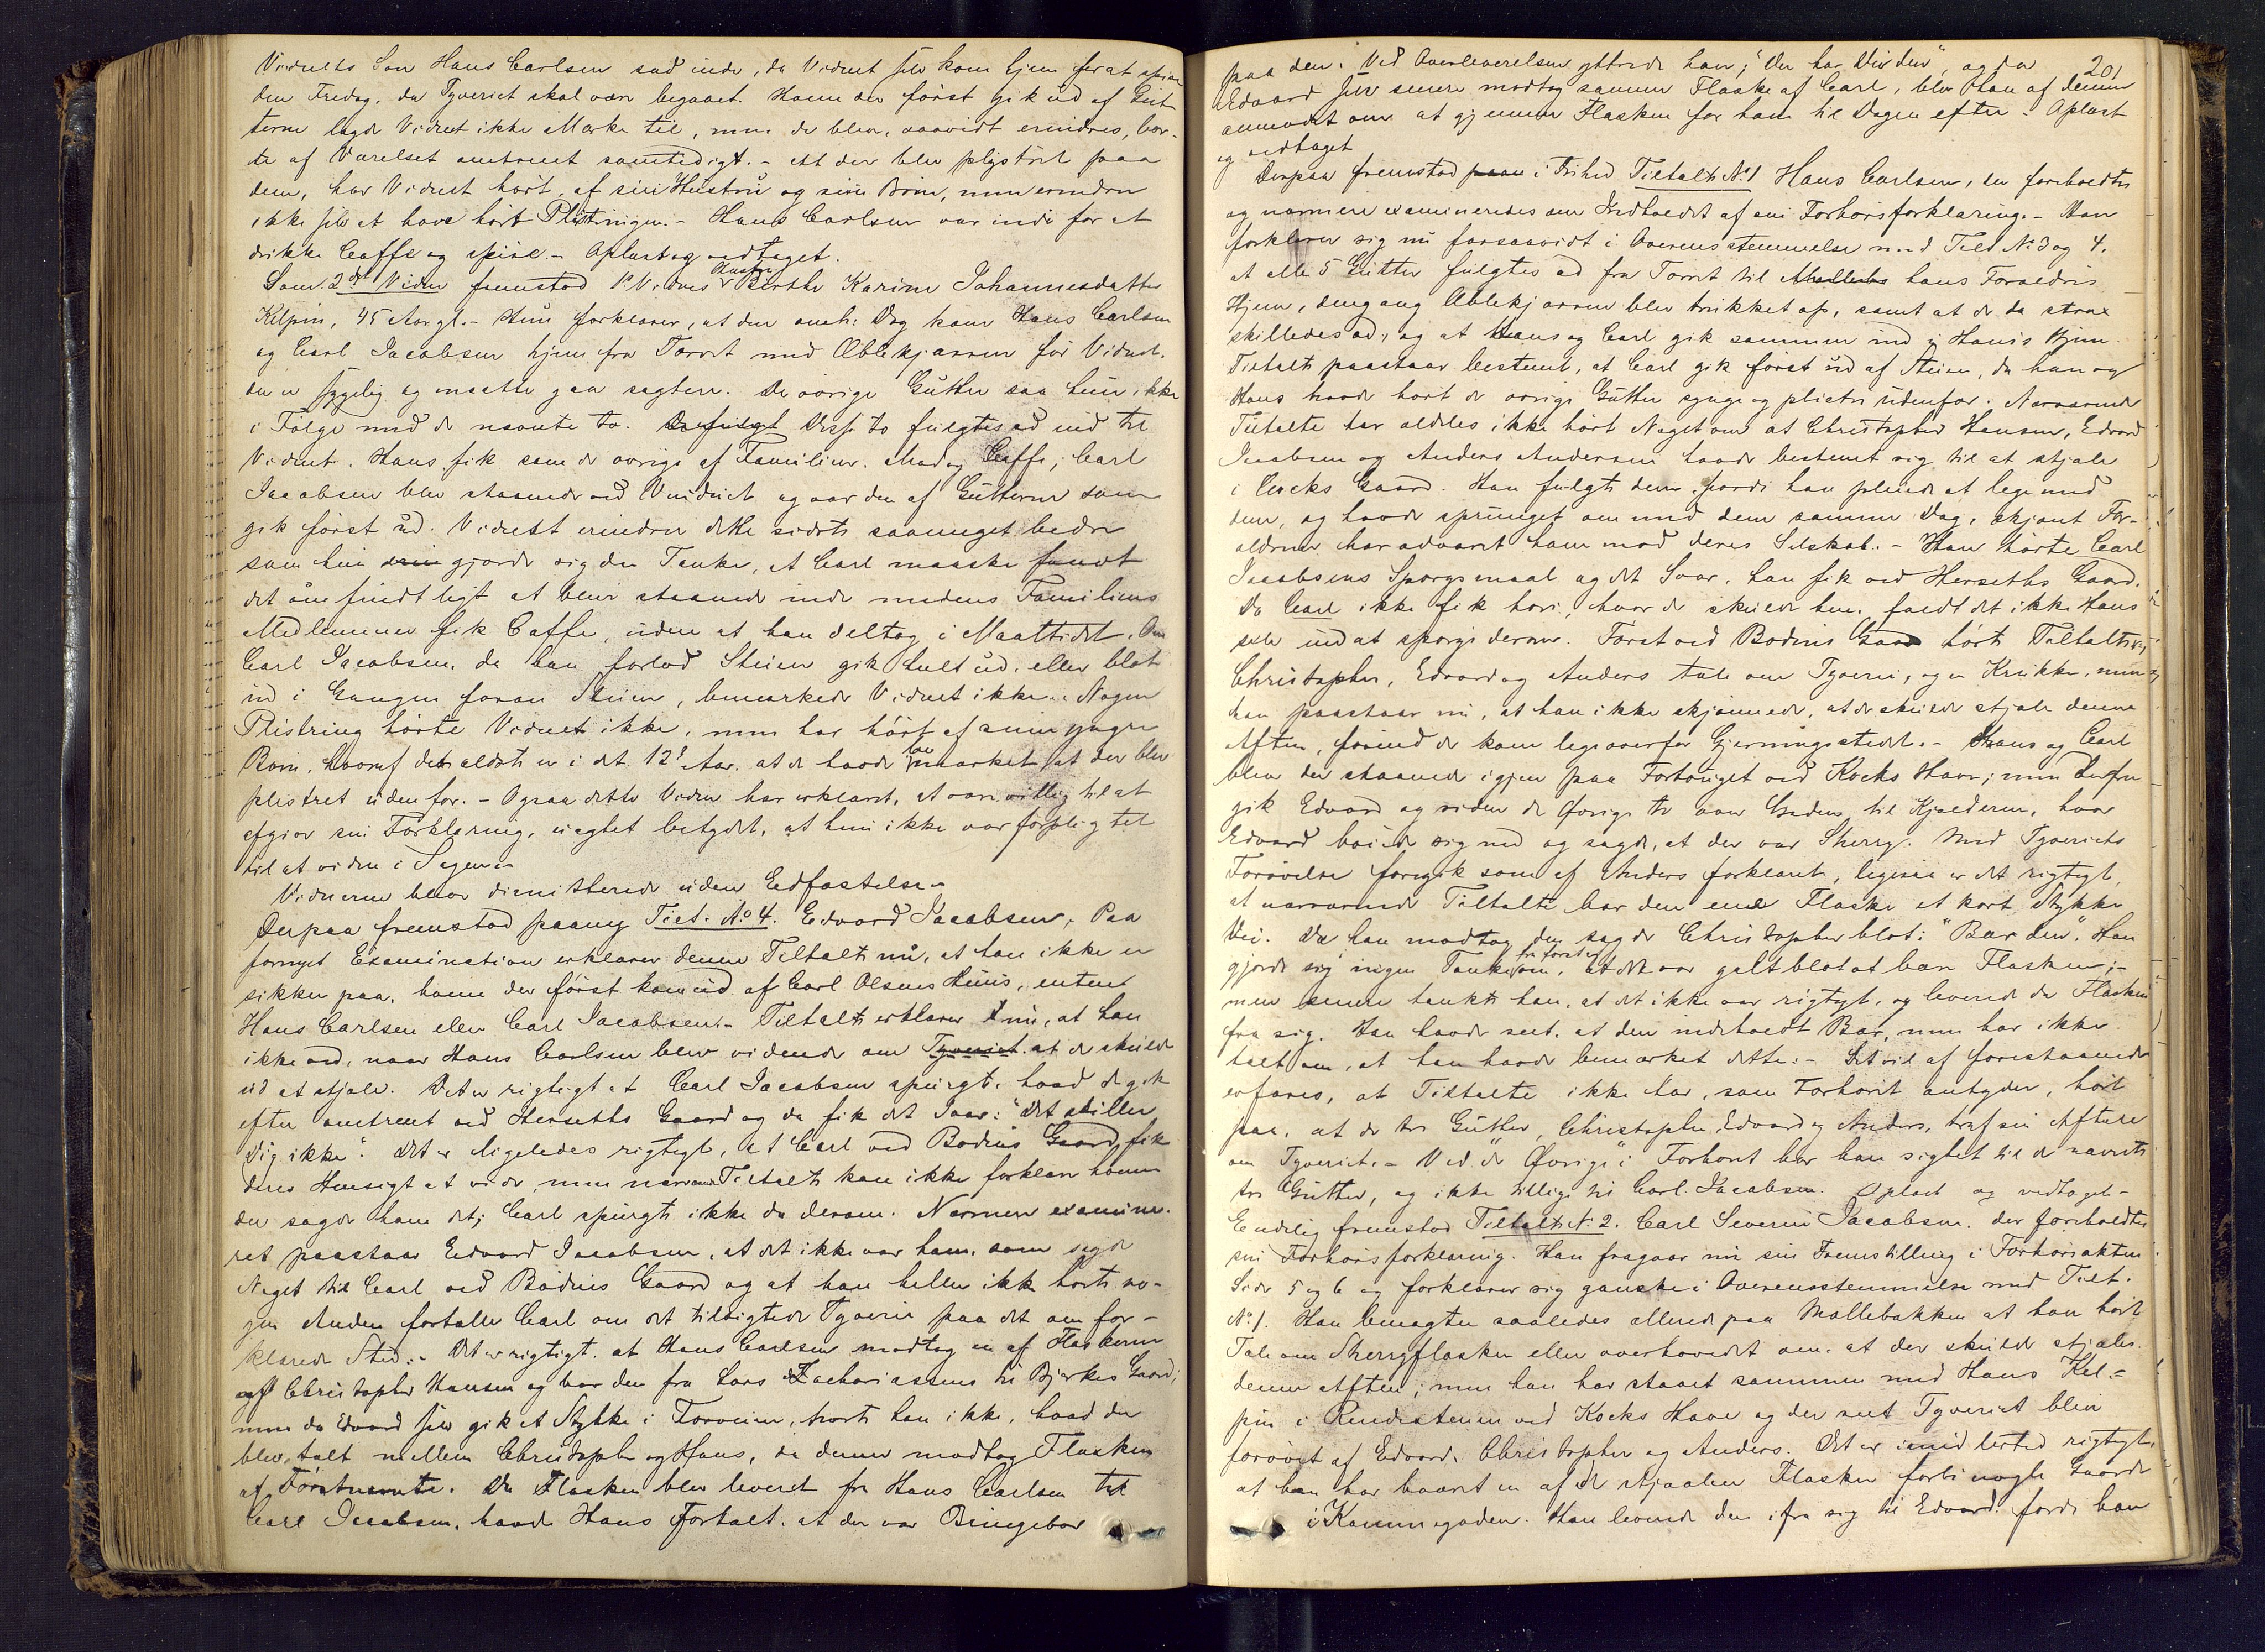 Vidnets Søn Hans Carlsen sad inde, da Vidnet selv kom hjem for at spise
den Fredag, da Tyveriet skal være begaaet. Hvem der først gik ud af Gut-
terne lagde Vidnet ikke Mærke til, men de blev, saavidt erindres, bor-
te af Værelset omtrent samtidigt. - At der blev plystret paa
dem, har Vidnet hørt af sin Hustru og sine Børn, men erindrer
ikke selv at have hørt Plistringen. - Hans Carlsen var inde for at
drikke Caffe og spise. - Oplæst og vedtaget.
Som 2det Vidne fremstod 1ste Vidnes Hustru Berthe Karine Johannesdatter
Kelpin, 45 Aar gl. - Hun forklarer, at den omh: Dag kom Hans Carlsen
og Carl Jacobsen hjem fra Torvet med Æblekjærren før Vidnet,
der er sygelig og maatte gaa sagtere. De øvrige Gutter saa hun ikke
i Følge med de nævnte to. De fulgt Disse to fulgtes ad ind til
Vidnet. Hans fik som de øvrige af Familien Mad og Caffe; Carl
Jacobsen blev staaende ved Vinduet og var den af Gutterne som
gik først ud. Vidnet erindrer dette sidste saameget bedre
som hun gjorde sig den Tanke, at Carl maaske fandt
det ømfindtligt at blive staaende inde medens Familiens
Medlemmer fik Caffe, uden at han deltog i Maaltidet. Om
Carl Jacobsen, da han forlod Stuen gik helt ud, eller blot
ud i Gangen foran Stuen, bemærkede Vidnet ikke. Nogen
Plistring hørte Vidnet ikke, men har hørt af sine yngre
Børn, hvoraf det ældste er i det 12te Aar, at de havde bemærket at der blev
plistret udenfor. - Ogsaa dette Vidne har erklæret, at være villig til at
afgive sin Forklaring, uagtet betydet, at hun ikke var forpligtet
til at vidne i Sagen. -
Vidnerne blev dimitterede uden Edfæstelse. -
Derpaa fremstod paany Tilt. No 4. Edvard Jacobsen. Paa
fornyet Examination erklærer denne Tiltalte nu, at han ikke er
sikker paa, hvem der først kom ud af Carl Olsens Huus, enten
Hans Carlsen eller Carl Jacobsen. - Tiltalte erklærer nu, at han
ikke ved, naar Hans Carlsen blev vidende om Tyveriet at de skulde
ud at stjæle. Det er rigtigt at Carl Jacobsen spurgte, hvad de gik
efter omtrent ved Herseths Gaard og da fik det Svar: "Det skiller
Dig ikke". Det er ligeledes rigtigt, at Carl ved Bødins Gaard fik
deres Hensigt at vide, men nærværende Tiltalte kan ikke forklare hvem
der sagde ham det; Carl spurgte ikke da derom. Nærmere examine-
ret paastaar Edvard Jacobsen, at det ikke var ham, som sagde
Noget til Carl ved Bødins Gaard og at han heller ikke hørte no-
gen Anden fortælle Carl om det tilsigtede Tyveri paa det om for-
klarede Sted. - Det er rigtigt, at Hans Carlsen modtog en af Flaskerne
af Christopher Hansen og bar den fra Lars Zachariassens til Bjerkes Gaard;
men da Edvard selv gik et Stykke i Forveien, hørte han ikke, hvad der
blev talt mellem Christopher og Hans, da denne modtog Flasken
af Førstnævnte. Da Flasken blev leveret fra Hans Carlsen til
Carl Jacobsen, havde Hans fortalt, at der var Bringebær
201
paa den. Ved Overleverelsen yttrede han; "Der har Du den", og da
Edvard selv senere modtog samme Flaske af Carl, blev han af denne
anmodet om at gjemme Flasken for ham til Dagen efter. Oplæst
og vedtaget
Derpaa fremstod paan i Frihed Tiltalte No 1 Hans Carlsen, der foreholdtes
og nærmere examineredes om Indholdet af sin Forhørsforklaring. - Han
forklarer sig nu forsaavidt i Overensstemmelse med Tilt No 3 og 4.
at alle 5 Gutter fulgtes ad fra Torvet til hans Forældres
Hjem, dengang Æblekjærren blev trukket op, samt at de da strax
skilledes ad, og at Hans og Carl gik sammen ind i Hans's Hjem.
Tiltalte paastaar bestemt, at Carl gik først ud af Stuen, da han og
Hans havde hørt de øvrige Gutter synge og plistre udenfor. Nærværende
Tiltalte har aldeles ikke hørt Noget om at Christopher Hansen, Edvard
Jacobsen og Anders Andersen havde bestemt sig til at stjæle
i Kocks Gaard. Han fulgte dem, fordi han pleiede at lege med
dem, og havde sprunget om med dem samme Dag, skjønt For-
ældrene har advaret ham mod deres Selskab. - Han hørte Carl
Jacobsens Spørgsmaal og det Svar, han fik ved Herseths Gaard.
Da Carl ikke fik høre, hvor de skulde hen, faldt det ikke Hans
selv ind at spørge derom. Først ved Bødins Gaard hørte Tiltalte
Christopher, Edvard og Anders tale om Tyveri, og en Krukke, men
han paastaar nu, at han ikke skjønnede, at de skulde stjæle denne
Aften, førend de kom ligeoverfor Gjerningsstedet. - Hans og Carl
blev der staaende igjen paa Fortouget ved Kocks Have; men derfra
gik Edvard og siden de øvrige to over Gaden til Kjælderen, hvor
Edvard bøiede sig ned og sagde, at der var Sherry. Med Tyveriets
Forøvelse foregik som af Anders forklaret, ligesaa er det rigtigt,
at nærværende Tiltalte bar den ene Flaske et kort Stykke
Vei. Da han modtog den sagde Christopher blot: "Bær den". Han
gjorde sig ingen Tanke om, at det var galt blot at bære Flasken; -
men senere tænkte han, at det ikke var rigtigt, og leverede da Flasken
fra sig. Han havde seet, at den indeholdt Bær, men har ikke
talt om, at han havde bemærket dette. - Det vil af forestaaende
erfares, at Tiltalte ikke har, som Forhøret antyder, hørt
paa, at de tre Gutter, Christopher, Edvard og Anders, traf sin Aftale
om Tyveriet. - Ved "de Øvrige" i Forhøret har han sigtet til de nævnte
tre Gutter, og ikke tillige til Carl Jacobsen. Oplæst og vedtaget -
Endelig fremstod Tiltalte No 2. Carl Severin Jacobsen, der foreholdtes
sin Forhørsforklaring. Han fragaar nu sin Fremstilling i Forhørsakten
Side 5 og 6 og forklarer sig ganske i Overensstemmelse med Tilt.
No 1. Han benægter saaledes allerede paa Møllebakken at han hørte
Tale om Sherryflasken eller overhovedet om, at der skulde stjæles
denne Aften; men han har staaet sammen med Hans Kel-
pin i Rendestenen ved Kocks Have og der seet Tyveriet blive
forøvet af Edvard, Christopher og Anders. Det er imidlertid rigtigt,
at han har baaret en af de stjaalne Flasker forbi nogle Gaarde
i Kammegaden. Han leverede den ifra sig til Edvard, fordi han